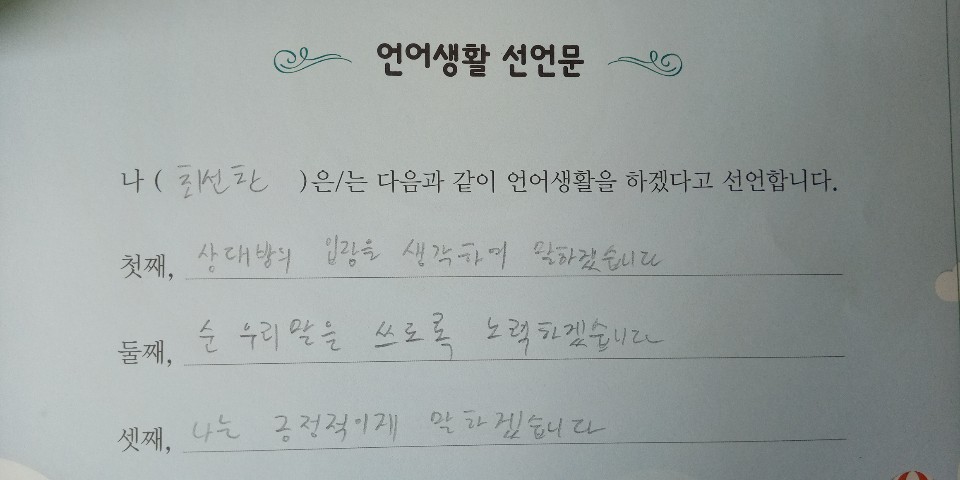 언어생활 선언문
나 ( 최선란 )은/는 다음과 같이 언어생활을 하겠다고 선언합니다.
첫째, 상대방의 입장을 생각하며 말하겠습니다
둘째, 순 우리말을 쓰도록 노력하겠습니다
셋째, 나는 긍정적이게 말하겠습니다